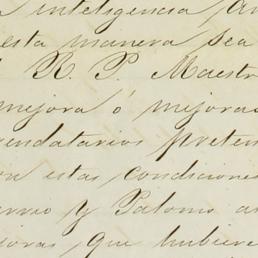 inteligencia
esta manera sea
R. P. Maestr
mejora ó mejoras
rendatarios preten
on estas condiciones
y Palomo a
joras que hubiere